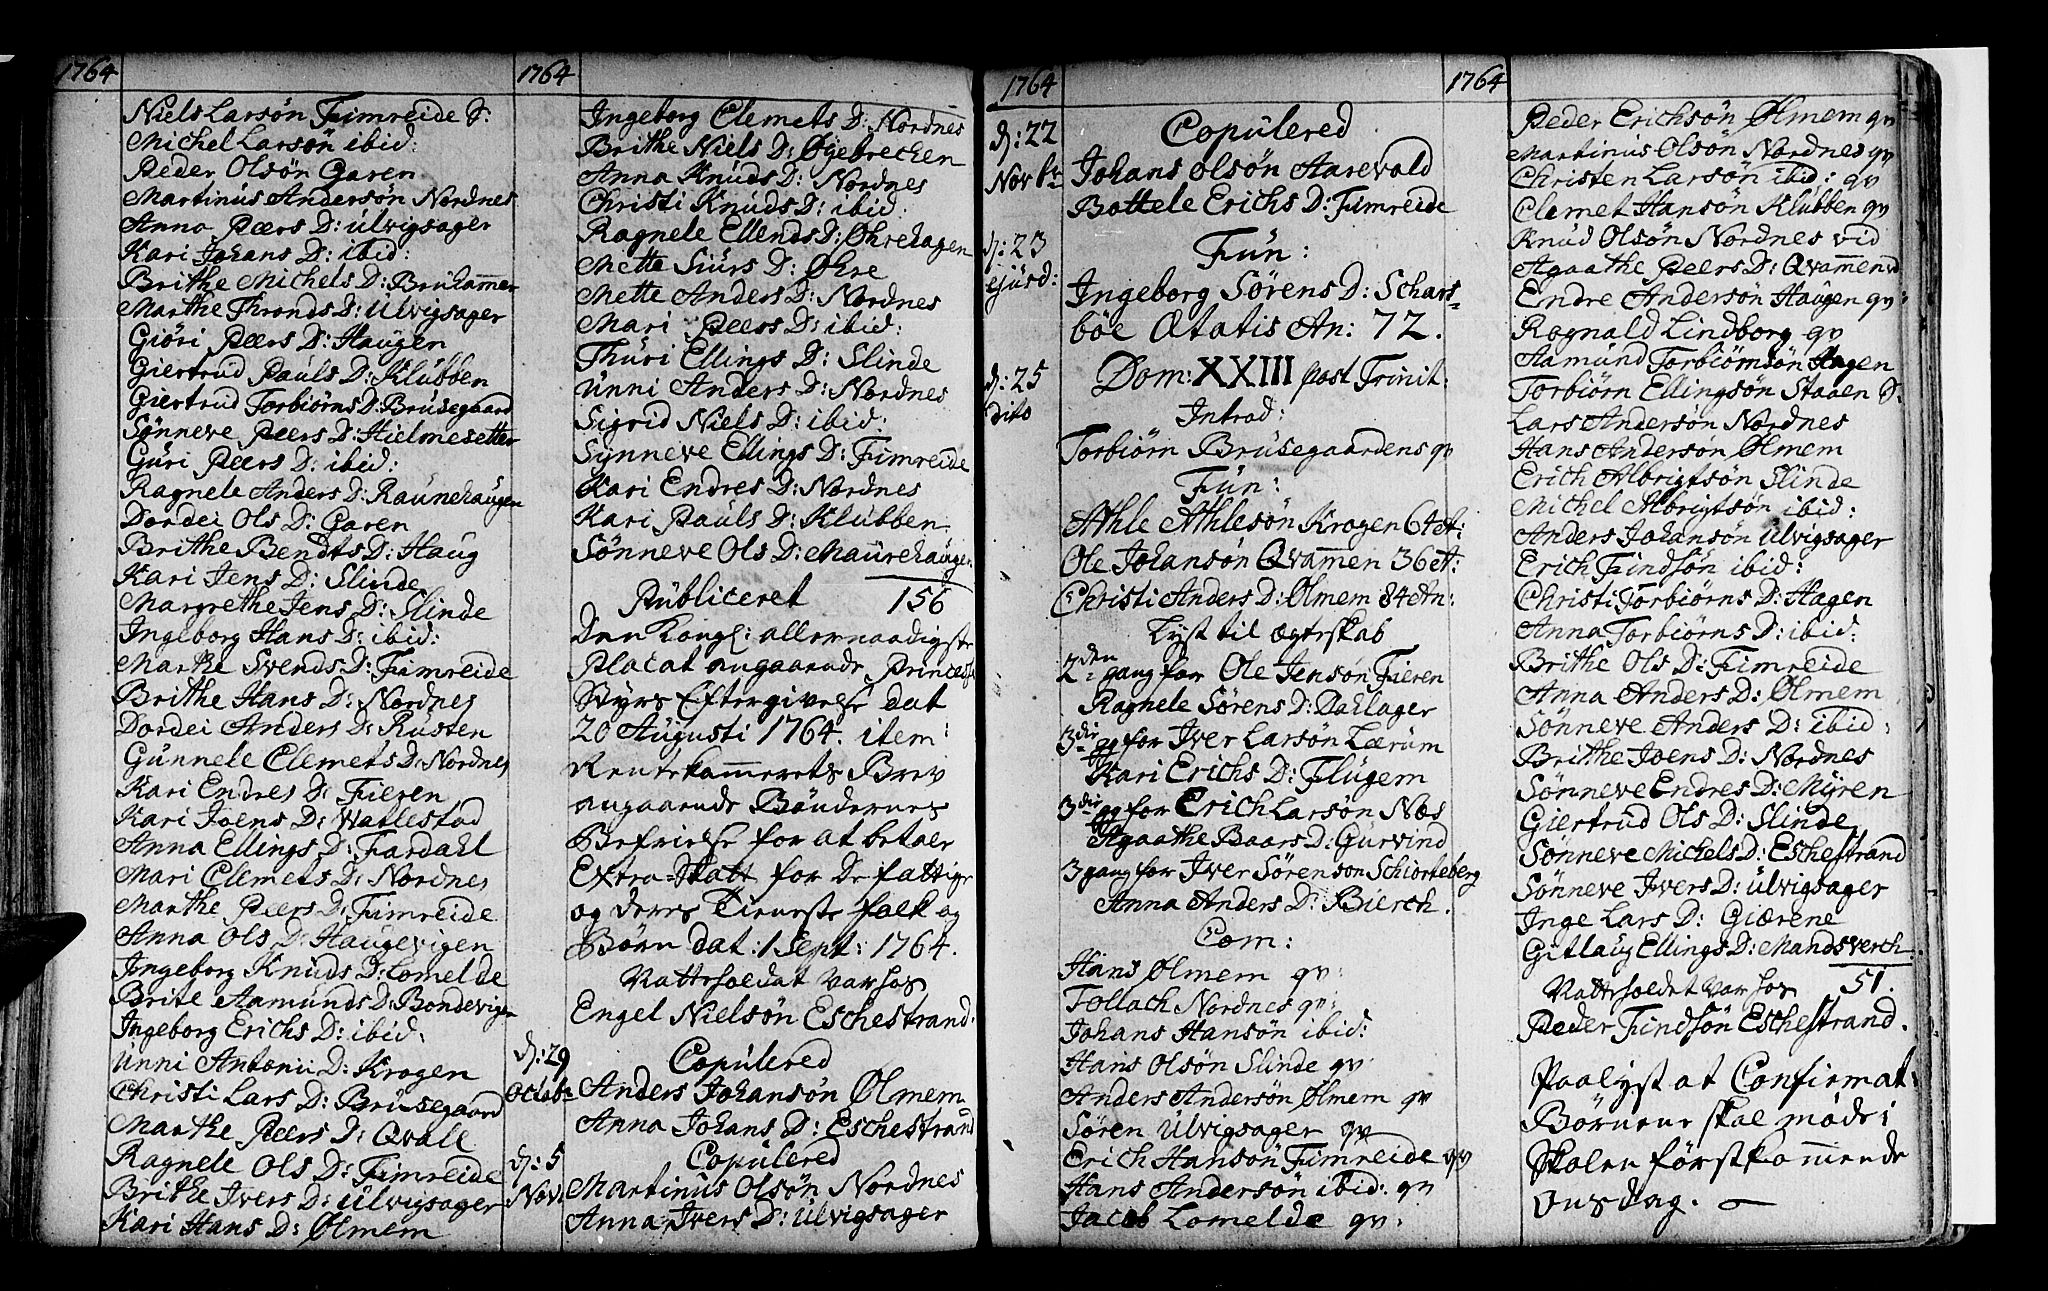 1764
Niels Larsøn Fimreide S:
Michel Larsøn ibid:
Peder Olsøn Garen
Martinus Andersøn Nordnes
Anna Peers D: Ulvigsager
Kari Johans D: ibid:
Brithe Michels D: Bruhammer
Marthe Thronds D: Ulvigsager
Giöri Peers D: Haugen
Giertrud Pauls D: Klubben
Giertrud Torbiørns D: Brusegaard
Sønneve Peers D: Hielmesetter
Guri Peers D: ibid:
Ragnele Anders D: Raunehaugen
Dordei Ols D: Garen
Brithe Bendts D: Haug
Kari Jens D: Slinde
Margrethe Jens D: Slinde
Ingeborg Hans D: ibid:
Marthe Svends D: Fimreide
Brithe Hans D: Nordnes
Dordei Anders D: Rusten
Gunnele Clemets D: Nordnes
Kari Endres D: Fieren
Kari Joens D: Watlestad
Anna Ellings D: Fardahl
Mari Clemets D: Nordnes
Marthe Peers D: Fimreide
Anna Ols D: Haugevigen
Ingeborg Knuds D: Lomelde
Brite Aamunds D: Bondevigen
Ingeborg Erichs D: ibid:
Unni Antonii D: Krogen
Christi Lars D: Brusegaard
Marthe Peers D: Qvale
Ragnele Ols D: Fimreide
Brithe Ivers D: Ulvigsager
Kari Hans D: Ølmem
1764
Ingeborg Clemets D: Nordnes
Brithe Niels D: Øyebrechen
Anna Knuds D: Nordnes
Christi Knuds D: ibid:
Ragnele Ellends D: Øhrehagen
Mette Siurs D: Øhre
Mette Anders D: Nordnes
Mari Peers D: ibid:
Thuri Ellings D: Slinde
Unni Anders D: Nordnes
Sigrid Niels D: ibid:
Synneve Ellings D: Fimreide
Kari Endres D: Nordnes
Kari Pauls D: Klubben
Sønneve Ols D: Maurehaugen
Publiceret 156
Den Kongl: allernaadigste
Placat angaaende Princesse
Styrs Eftergivelse dat
20 Augusti 1764. item:
Rentekammerets Brev
angaaende Bøndernes
Befrielse for at betale
Extra-Skatt for De fattige
og deres Tieneste folk og
Børn dat: 1 Sept: 1764.
Natteholdet var hos
Engel Nielsøn Eschestrand.
d: 29 Octobr
Copulered
Anders Johansøn Ølmem
Anna Johans D: Eschestrand
d: 5 Nov:
Copulered
Martinus Olsøn Nordnes
Anna Ivers D: Ulvigsager
1764
d: 22 Novbr
Copulered
Johans Olsøn Aarevold
Bottele Erichs D: Fimreide
d: 23 ejusd:
Fun:
Ingeborg Sørens D: Schars-
bøe Ætatis An: 72.
d: 25 dito
Dom: XXIII post Trinit:
Introd:
Torbiørn Brusegaardens qv
Fun:
Athle Athlesøn Krogen 6 Æt:
Ole Johansøn Qvammen 36 Æt:
Christi Anders D: Ølmem 84 An:
Lyst til Ægteskab
2den gang for Ole Jensøn Fieren
Ragnele Sørens D: Dahlager
3die gg for Iver Larsøn Lærum
Kari Erichs D: Flugem
3die gg for Erich Larsøn Næs
Agaathe Baars D: Gurvind
3 gang for Iver Sørenson Schiorteberg
Anna Anders D: Bierch.
Com:
Hans Ølmem qv:
Tollach Nordnes qv:
Johans Hansøn ibid:
Hans Olsøn Slinde qv
Anders Andersøn Ølmem qv
Søren Ulvigsager qv
Erich Hansøn Fimreide qv
Hans Andersøn ibid: qv
Jacob Lomelde qv:
1764
Peder Erichsøn Ølmem qv
Martinus Olsøn Nordnes qv
Christen Larsøn ibid: qv
Clemet Hansøn Klubben qv
Knud Olsøn Nordnes vid
Agaathe Peers D: Qvammen vid
Endre Andersøn Haugen qv:
Ragnald Lindborg qv
Aamund Torbiørnsøn Hagen
Torbiørn Ellingsøn Staaen S.
Lars Andersøn Nordnes
Hans Andersøn Ølmem
Erich Albrigtsøn Slinde
Michel Albrigtsøn ibid:
Anders Johansøn Ulvigsager
Erich Findsøn ibid:
Christi Torbiørns D: Hagen
Anna Torbiørns D: ibid:
Brithe Ols D: Fimreide
Anna Anders D: Ølmem
Sønneve Anders D: ibid:
Brithe Joens D: Nordnes
Sønneve Endres D: Myren
Giertrud Ols D: Slinde
Sønneve Michels D: Eschestrand
Sønneve Ivers D: Ulvigsager
Inge Lars D: Giærene
Gitlaug Ellings D: Mandsverch.
Natteholdet var hos 51.
Peder Findsøn Eschestrand.
Paalyst at Confirmat:
Børnene skal møde i
Skolen førstkommende
Onsdag.